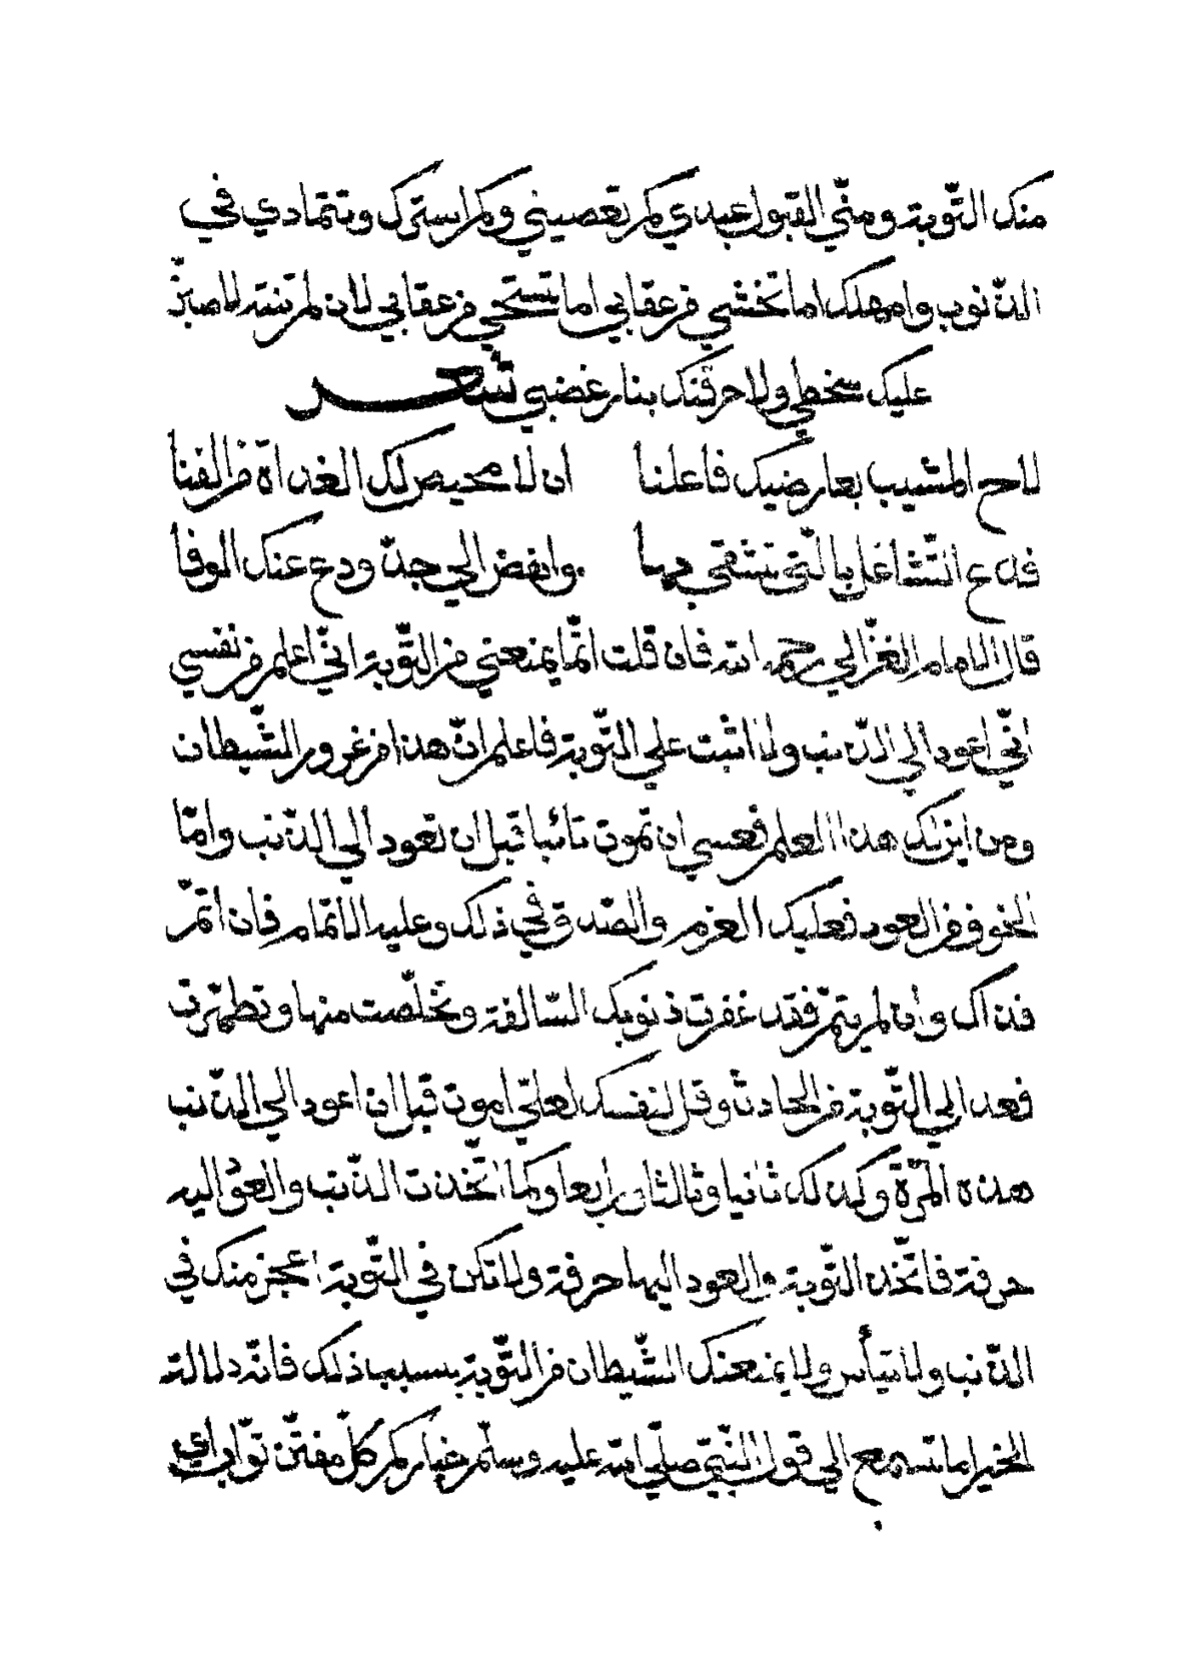 منك التّوبة ومنّي القبول عبدي كم تعصيني وكم استرك وتتمادي في
الذّنوب وامهلك اما تخشي من عقابي اما تستحي من عقابي لان لم تنته لاصبنّ
عليك سخطي ولاحرقنك بنار غضبي شعر
لاح المشيب بعارضيك فاعلنا ان لا محيص لك الغداة من الفنا
فدع التّشاغل بالّتي تشقي بها وانهض الي جدّ ودع عنك الوفا
قال الامام الغزّالي رحمه الله فان قلت انّما يمنعني من التّوبة انّي اعلم من نفسي
انّي اعود الي الذّنب ولا اثبت علي التّوبة فاعلم انّ هذا من غرور الشّيطان
ومن اين لك هذا العلم فعسي ان تموت تائبا قبل ان تعود الي الذّنب وامّا
الخوف من العود فعليك العزم والصّدق في ذلك وعليه الاتمام فان اتمّ
فذاك وان لم يتمّ فقد غفرت ذنوبك السّالفة وتخلّصت منها وتطهّرت
فعد الي التّوبة من الحادث وقل لنفسك لعلّي اموت قبل ان اعود الي الذّنب
هذه المرّة وكذلك ثانيا وثالثا ورابعا وكما اتّخذت الذّنب والعود اليه
حرفة فاتّخذ التّوبة والعود اليها حرفة ولا تكن في التّوبة اعجز منك في
الذّنب ولا تيأس ولا يمنعنك الشّيطان من التّوبة بسبب ذلك فانّه دلالة
الخير اما تسمع الي قول النّبيّ صلّي الله عليه وسلّم خياركم كلّ مفتّن توّاب اي